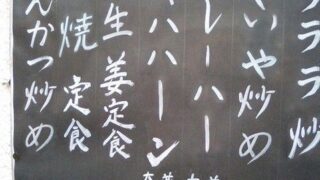 ララ炒
いや炒め
レーハー
ハハーン
生姜定食
焼定食
んかつ炒め